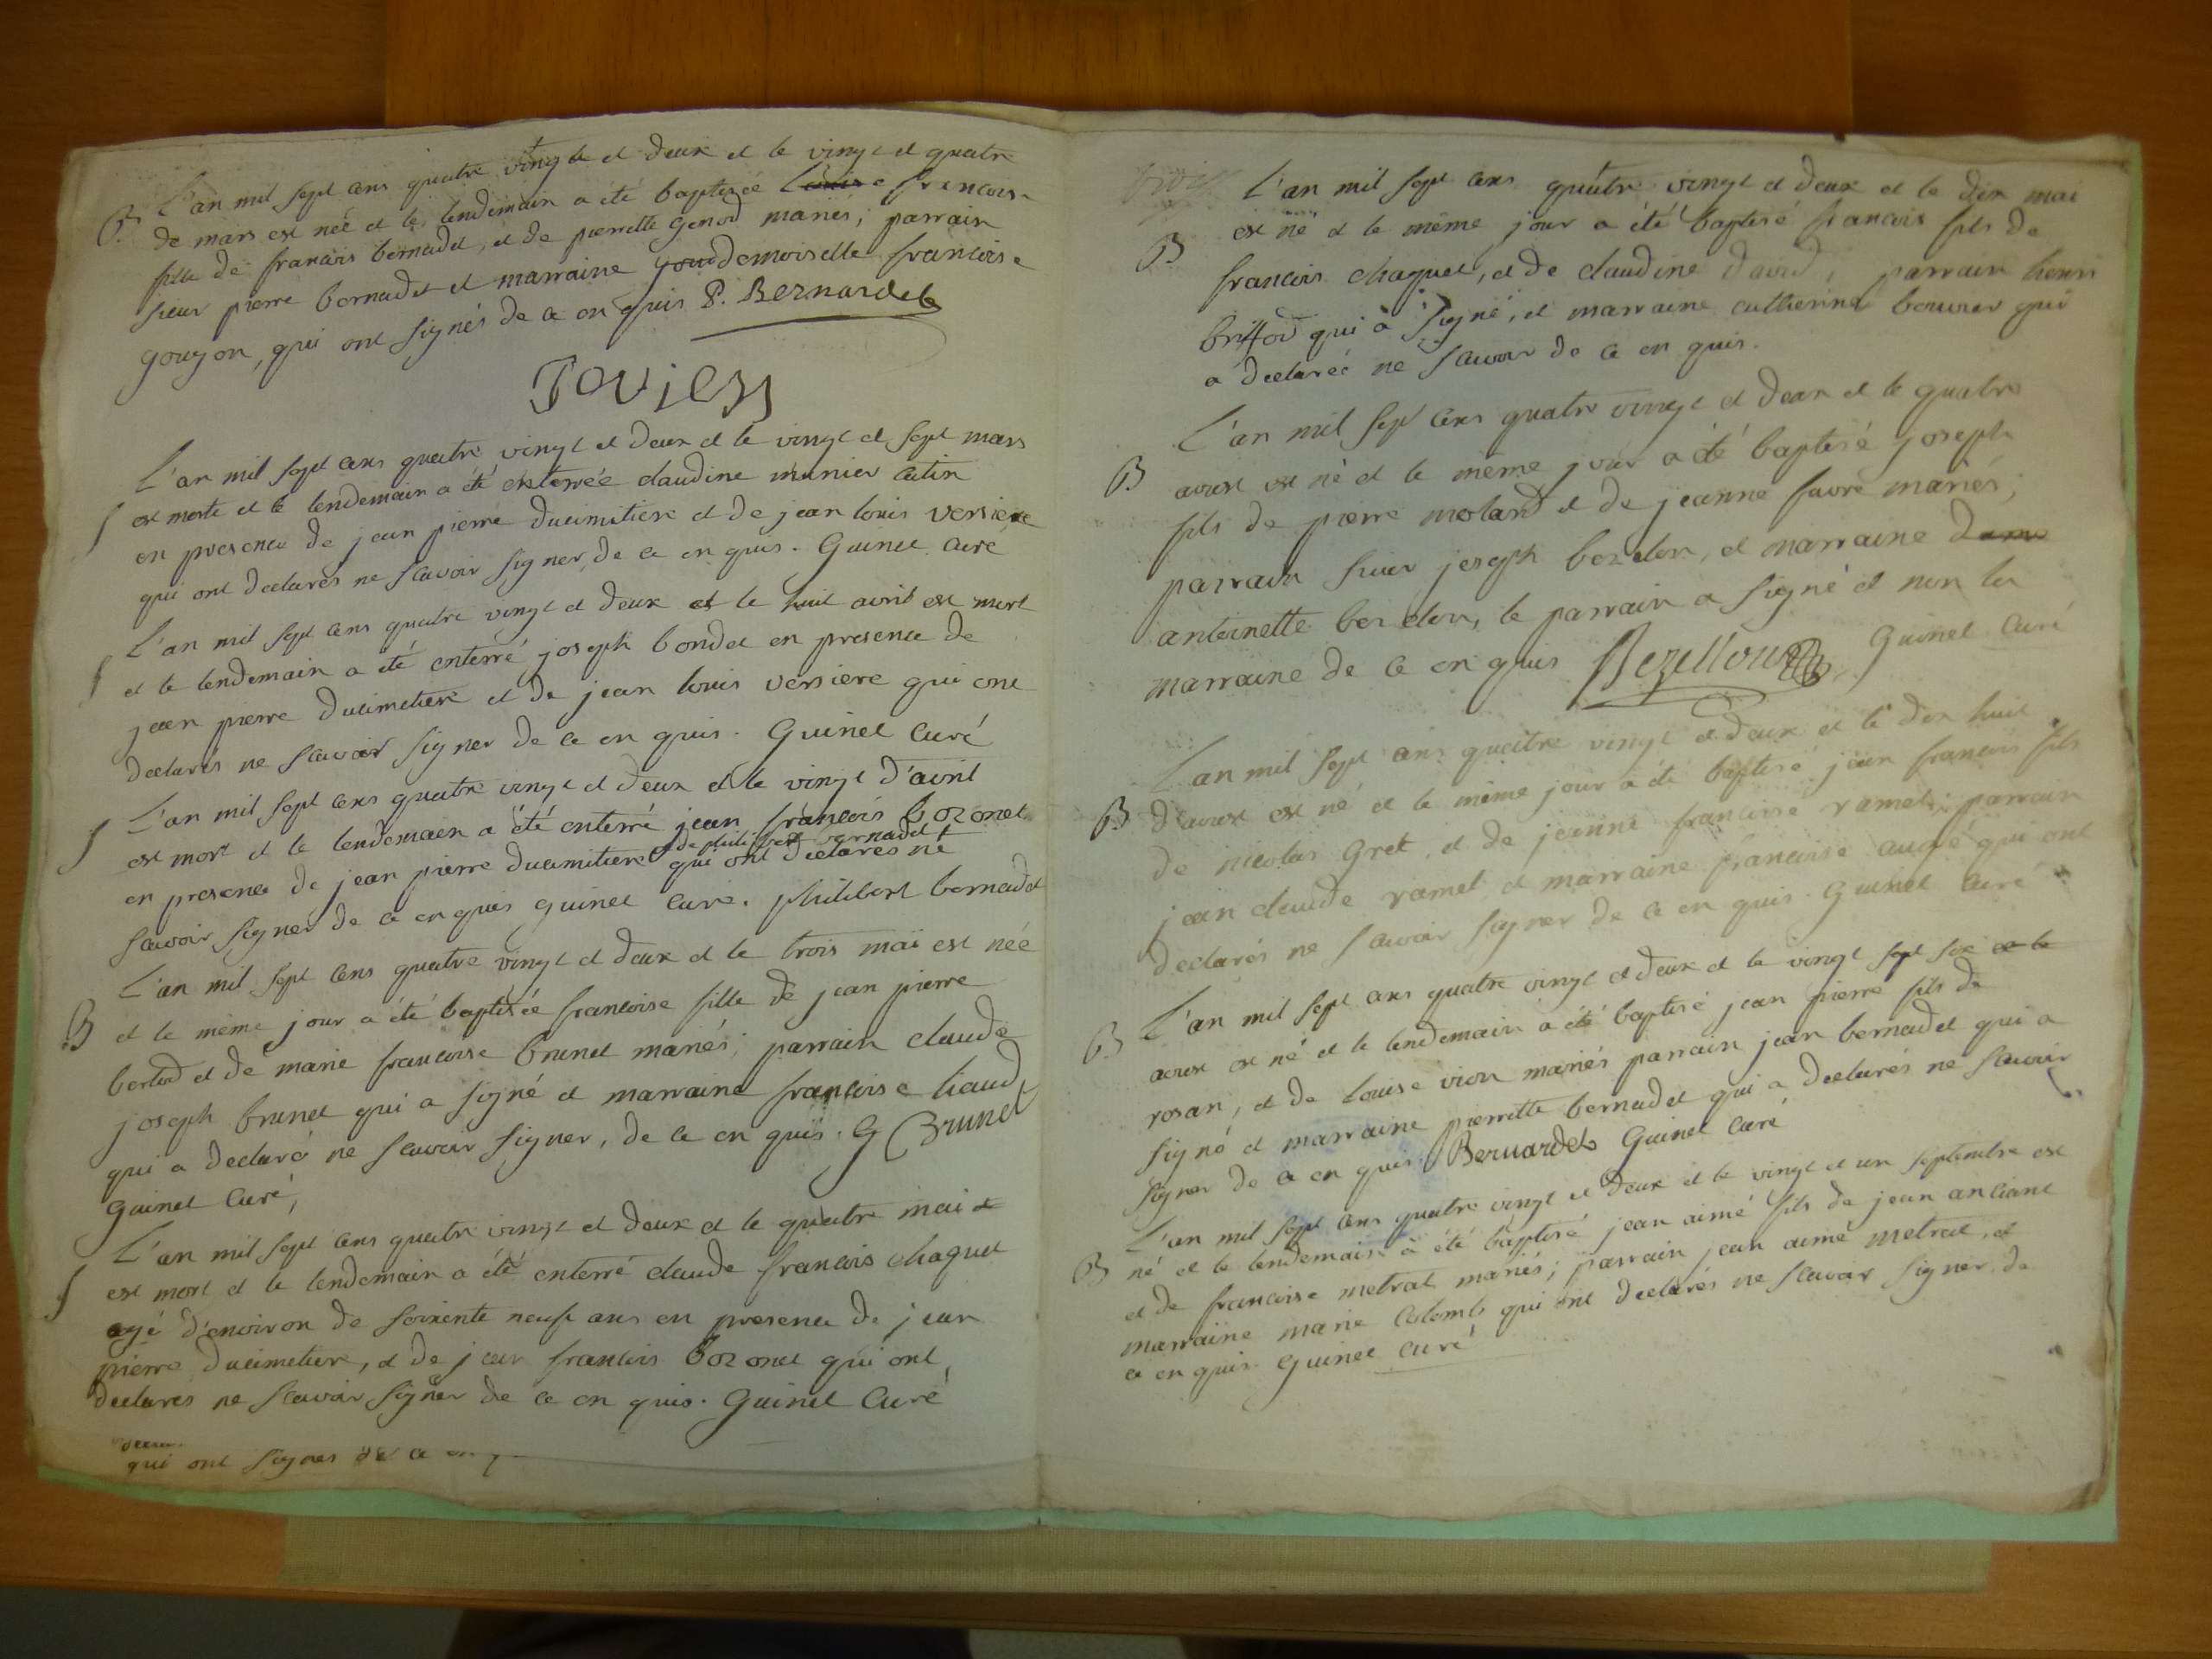 B L'an mil sept cens quatre vingt et deux et le vingt et quatre
de mars est née et le lendemain a été baptisée Louise francoise
fille de francois bernadet, et de pierrette genod mariés; parrain
sieur pierre bernadet et marraine gou demoiselle francoise
goujon, qui ont signés de ce en quis P. Bernardet
Goujon
L'an mil sept cens quatre vingt et deux et le vingt et sept mars
S est morte et le lendemain a été enterrée claudine munier catin
en presence de jean pierre ducimitiere et de jean louis versiere
qui ont declarés ne scavoir signer, de ce en quis. Guinet curé
L'an mil sept cens quatre vingt et deux et le huit avril est mort
S et le lendemain a été enterré joseph bondet en presence de
jean pierre ducimetiere et de jean louis versiere qui ont
declarés ne scavoir signer de ce en quis. Guinet curé
L'an mil sept cens quatre vingt et deux et le vingt d'avril
S est mort et le lendemain a été enterré jean francois bozonet
et de philibert bernadet
en presence de jean pierre ducimitiere qui ont declarés ne
scavoir signer de ce en quis guinet curé. philibert bernadet
L'an mil sept cens quatre vingt et deux et le trois mai est née
B et le même jour a été baptisée francoise fille de jean pierre
berlid et de marie francoise brunet mariés; parrain claude
joseph brunet qui a signé et marraine francoise liaud
qui a declaré ne scavoir signer, de ce en quis. G Brunet
Guinet curé,
L'an mil sept cens quatre vingt et deux et le quatre mai et
S est mort et le lendemain a été enterré claude francois chaquet
agé d'environ de soixente neuf ans en presence de jean
pierre ducimetiere, et de jean francois bozonet qui ont
declarés ne scavoir signer de ce en quis. Guinet curé
qui ont signes de ce en q
L'an mil sept cens quatre vingt et deux et le dix mai
B est né et le même jour a été baptisé francois fils de
francois chaquet, et de claudine david, parrain henri
briffod qui a signé, et marraine catherine bouvier qui
a declarée ne scavoir de ce en quis.
L'an mil sept cens quatre vingt et deux et le quatre
B aoust est né et le même jour a été baptisé joseph
fils de pierre molard et de jeanne favre mariés;
parrain sieur joseph bezelon, et marraine dame
antoinette bezelon, le parrain a signé et non la
marraine de ce en quis Bezellon Guinet curé
L'an mil sept cens quatre vingt et deux et le dix huit
B d'aoust est né et le même jour a été baptisé jean francois fils
de nicolas Gret, et de jeanne francoise ramet; parrain
jean claude ramet et marraine francoise augé qui ont
declarés ne scavoir signer de ce en quis. Guinet curé
L'an mil sept cens quatre vingt et deux et le vingt sept six et le
B aoust est né et le lendemain a été baptisé jean pierre fils de
rosan, et de louise vion mariés parrain jean bernadet qui a
signé et marraine pierrette bernadet qui a declarés ne scavoir
signer de ce en quis. Bernardet Guinet curé
L'an mil sept cens quatre vingt et deux et le vingt et un septembre est
B né et le lendemain a été baptisé jean aimé fils de jean antiant
et de francoise metrat mariés; parrain jean aimé metrat, et
marraine marie colomb qui ont declarés ne scavoir signer de
ce en quis. Guinet curé